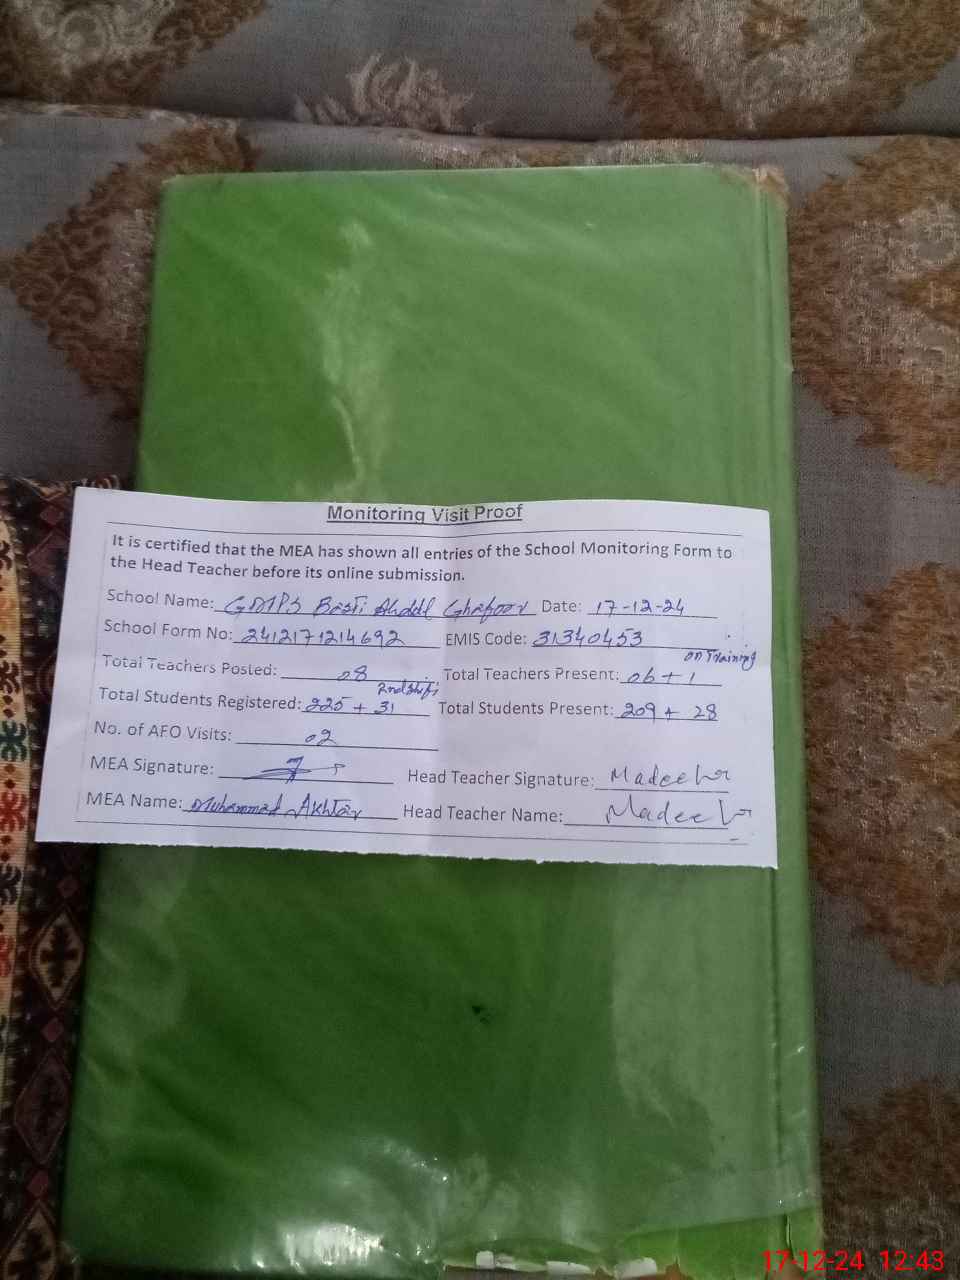 Monitoring Visit Proof
It is certified that the MEA has shown all entries of the School Monitoring Form to
the Head Teacher before its online submission.
School Name: GMPS Basti Abdul Ghafoor Date: 17-12-24
School Form No: 2412171214692 EMIS Code: 31340453
Total Teachers Posted: 08 Total Teachers Present: 06 + 1 on Training
Total Students Registered: 225 + 31 2nd Shift Total Students Present: 209 + 28
No. of AFO Visits: 02
MEA Signature: Head Teacher Signature: Madeeha
MEA Name: Muhammad Akhtar Head Teacher Name: Madeeha
17-12-24 12:43